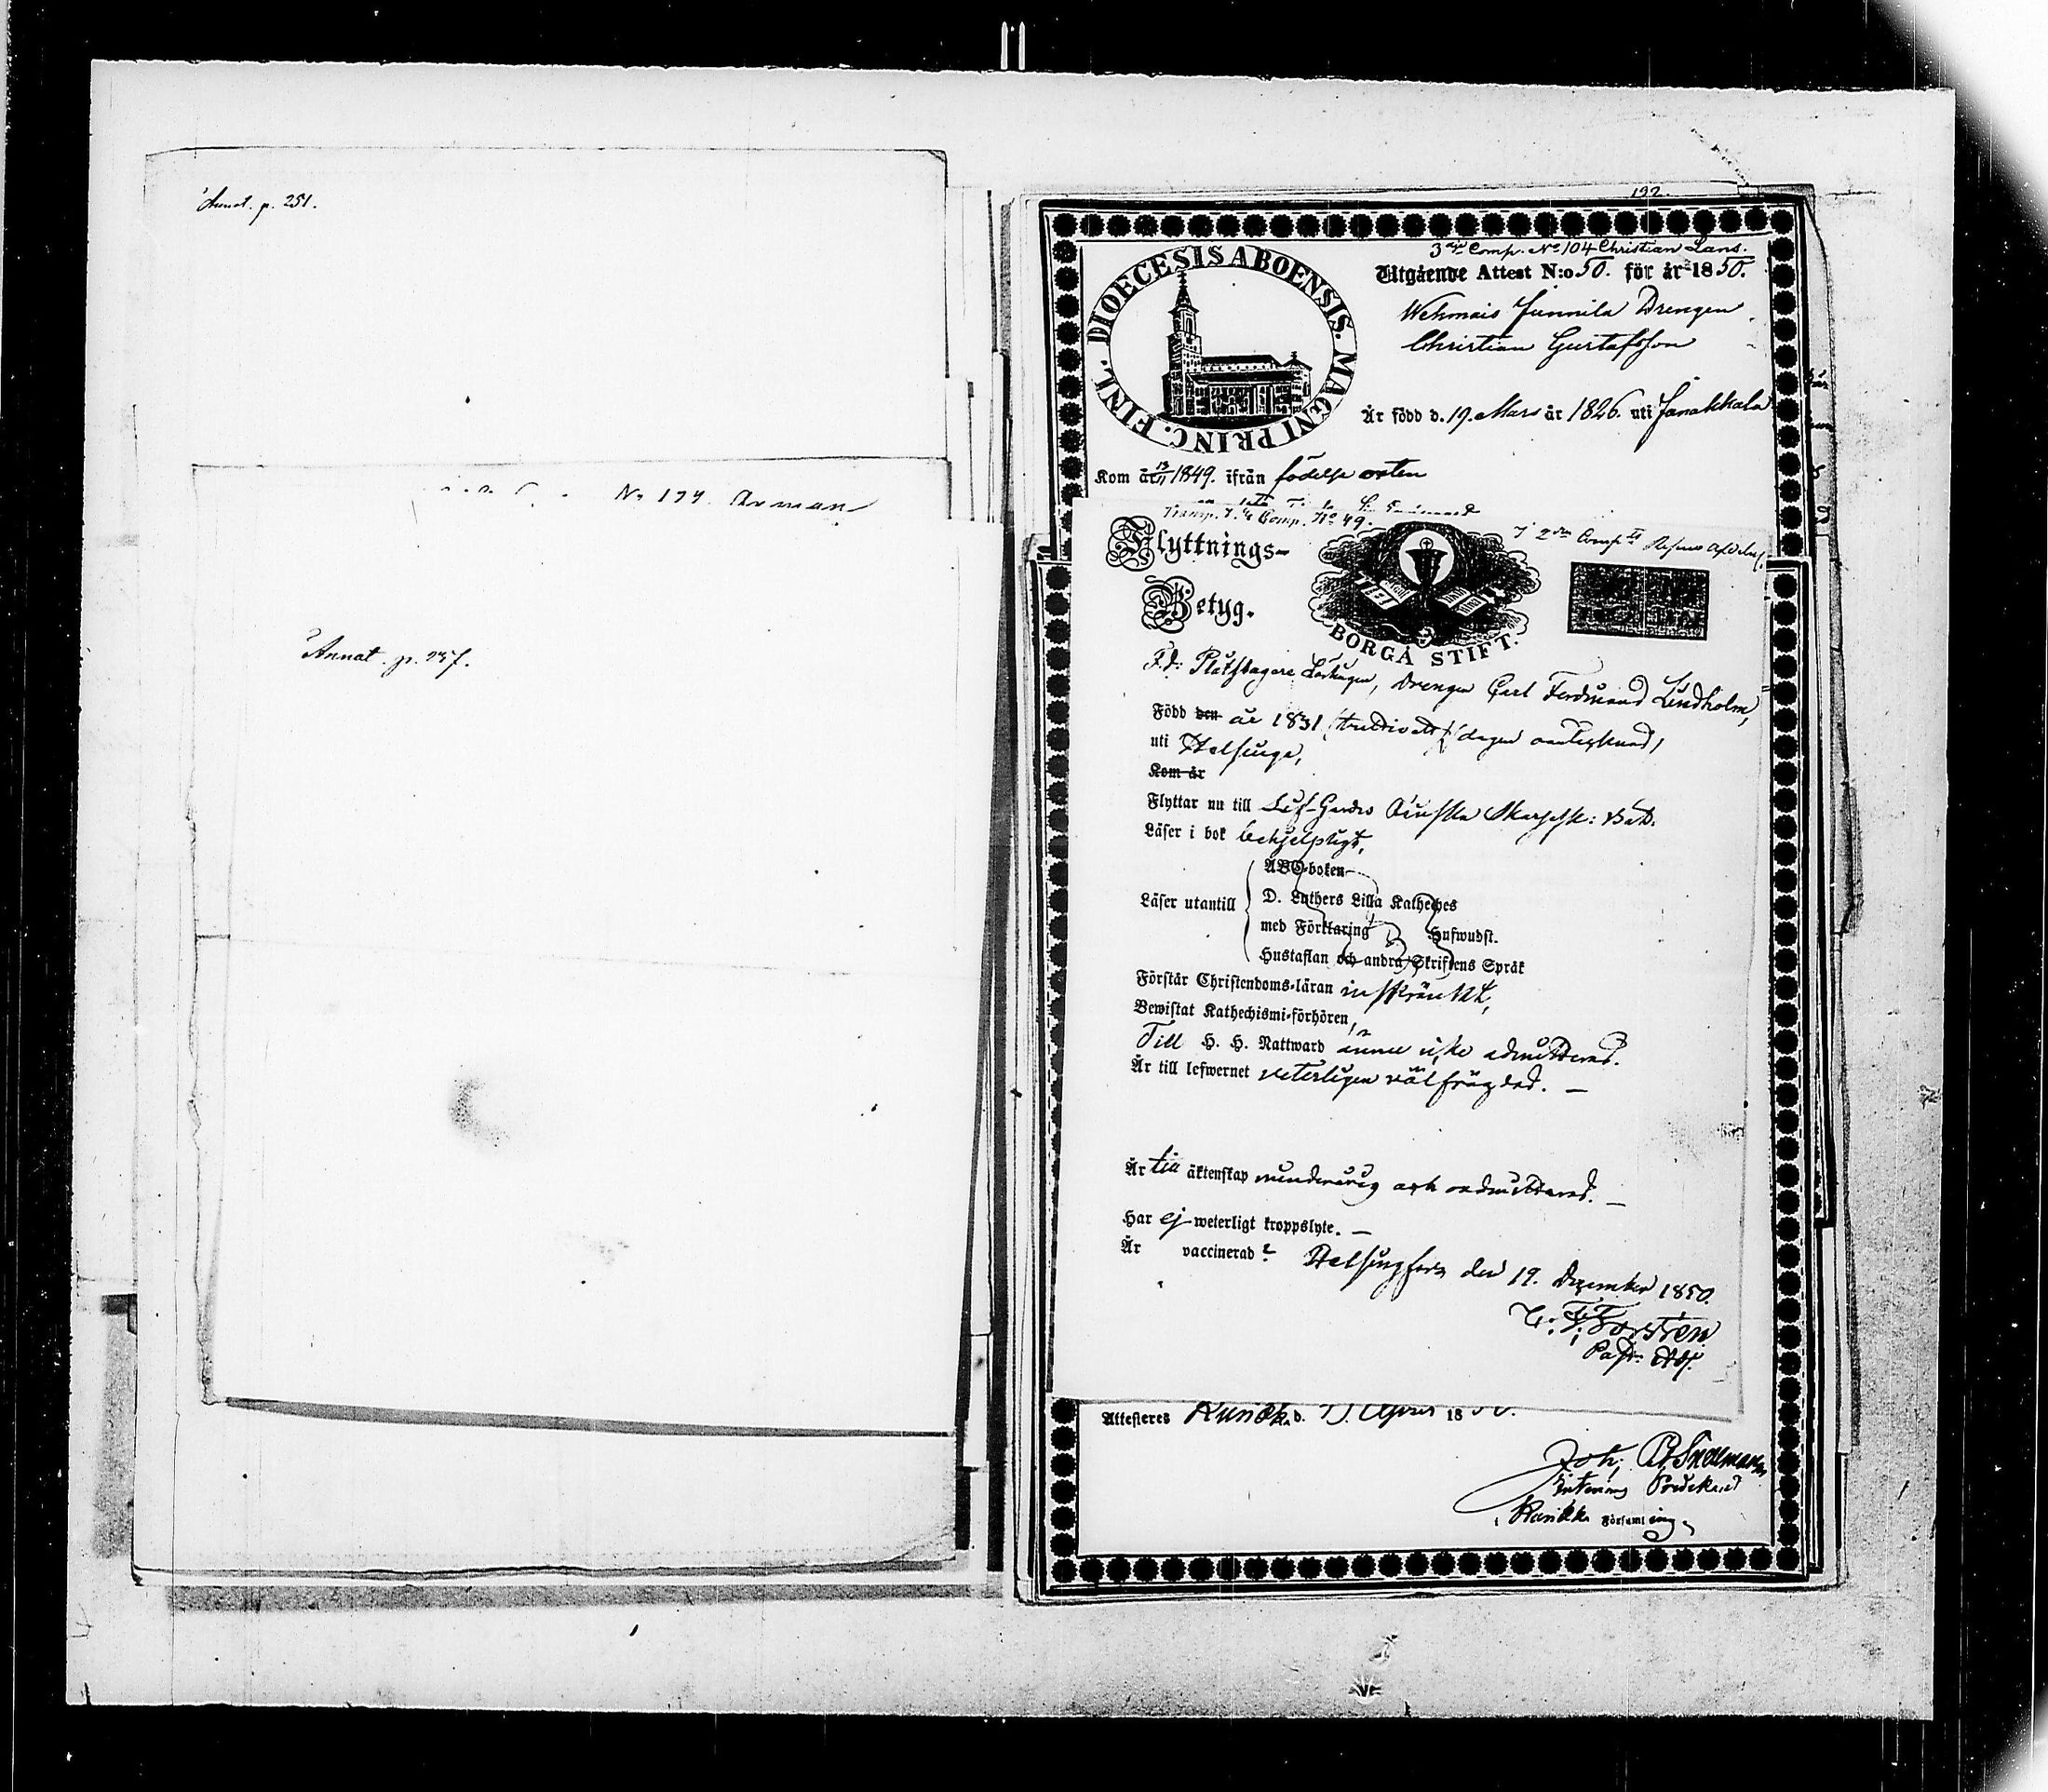 Annot. p. 251.
No 174. Arman
Annot. p. 257.
122.
3dje Comp. No 104 Christian Lans.
DIOECESIS ABOENSIS. MAGNI PRINC. FINL.
Utgående Attest N:o 50. för år 1850.
Wehmais Junnila Drengen
Christian Gustafsson
Är född d. 19. Mars år 1826. uti Janakkala
Kom år 13/11 1849. ifrån födelse orten
Transp. t. 4 Comp. No 49.
Flyttnings-
Betyg.
BORGÅ STIFT.
F.d: Drengen Carl Ferdinand Lindholm,
Född den år 1831 dagen
uti Helsinge,
Kom år
Flyttar nu till Lif-Gardes Finska Skarpsk: Bat.
Läser i bok behjelpligt,
Läser utantill
ABC-boken
D. Luthers Lilla Katheches
med Förklaring Hufwudst.
Hustaflan och andra Skriftens Språk
Förstår Christendoms-läran inskränkt,
Bewistat Kathechismi-förhören,
Till H. H. Nattward ännu icke admitterad.
Är till lefwernet veterligen välfrägdad. —
Är till äktenskap minderårig och oadmitterad. —
Har ej weterligt kroppslyte. —
Är vaccinerad? Helsingfors den 19. December 1850.
C. F. Forstén
Past. Adj.
Attesteres d. April 18
Joh.
Predikant
i Församling